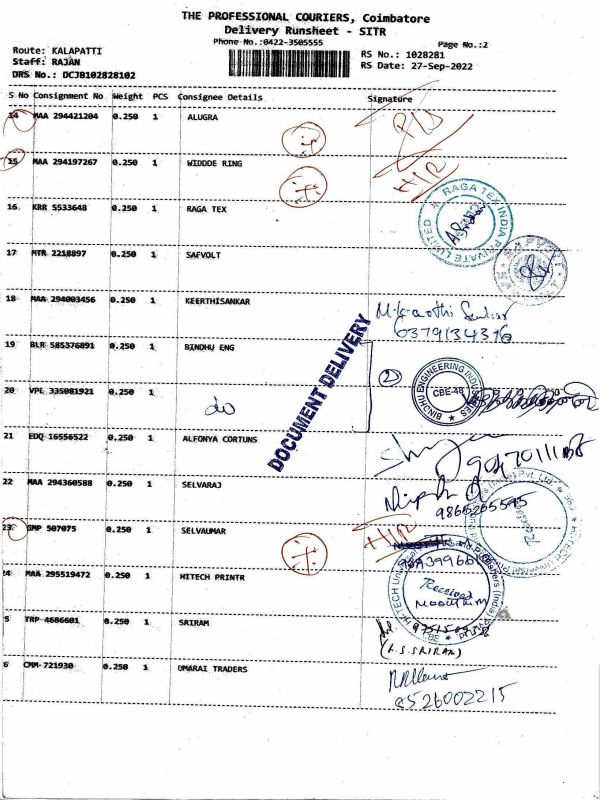 THE PROFESSIONAL COURIERS, Coimbatore
Delivery Runsheet - SITR
Phone No.:0422-3505555
Page No.:2
Route: KALAPATTI
Staff: RAJAN
DRS No.: DCJB102828102
RS No.: 1028281
RS Date: 27-Sep-2022
S No Consignment No Weight PCS Consignee Details Signature
14 MAA 294421204 0.250 1 ALUGRA
15 MAA 294197267 0.250 1 WIDDDE RING
H/R
16 KRR 5533648 0.250 1 RAGA TEX
RAGA TEX INDIA PRIVATE LIMITED
17 MTR 2218897 0.250 1 SAFVOLT
18 MAA 294003456 0.250 1 KEERTHISANKAR
6379134376
DOCUMENT DELIVERY
19 BLR 585376891 0.250 1 BINDHU ENG
2
BINDHU ENGINEERING INDUSTRIES
CBE-48
20 VPL 335081921 0.250 1 do
21 EDQ 16556522 0.250 1 ALFONYA CORTUNS
22 MAA 294360588 0.250 1 SELVARAJ
9865265595
23 GMP 507075 0.250 1 SELVAUMAR
H/R
24 MAA 295519472 0.250 1 HITECH PRINTR
Received
5 TRP 4686601 0.250 1 SRIRAM
(A.S.SRIRAM)
6 CMM-721930 0.250 1 UMARAI TRADERS
9526002215